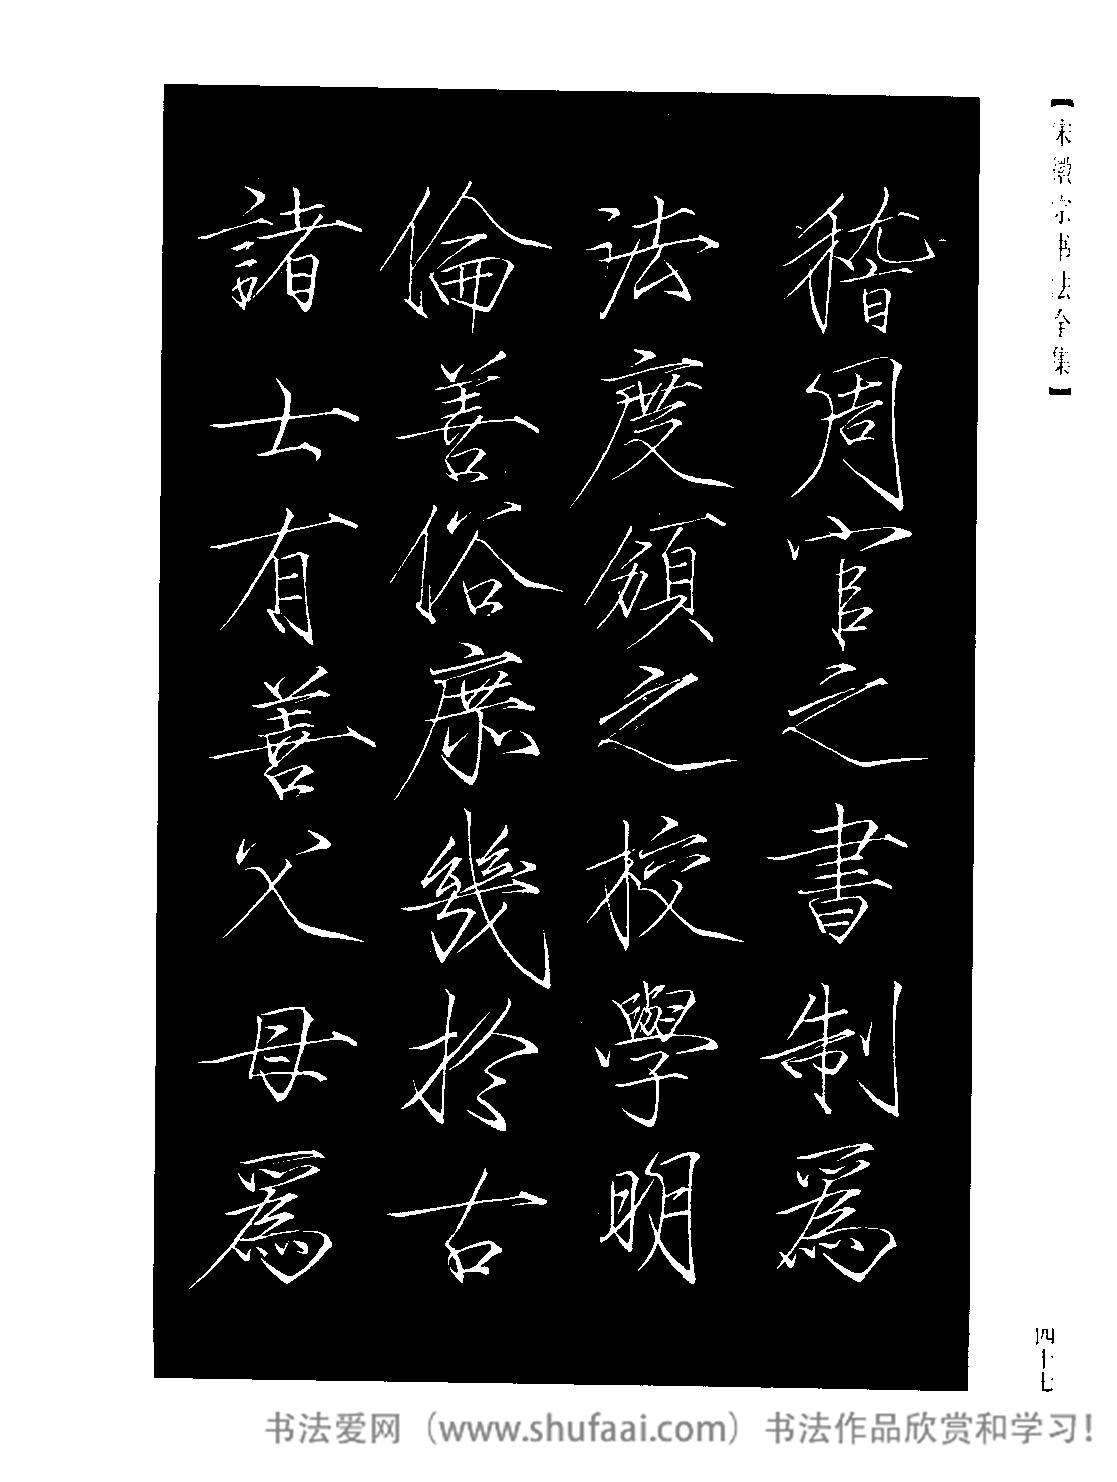 【宋徽宗书法全集】
稽周官之書制爲
法度頒之校學明
倫善俗庶幾於古
諸士有善父母爲
四十七
书法爱网（www.shufaai.com）书法作品欣赏和学习！